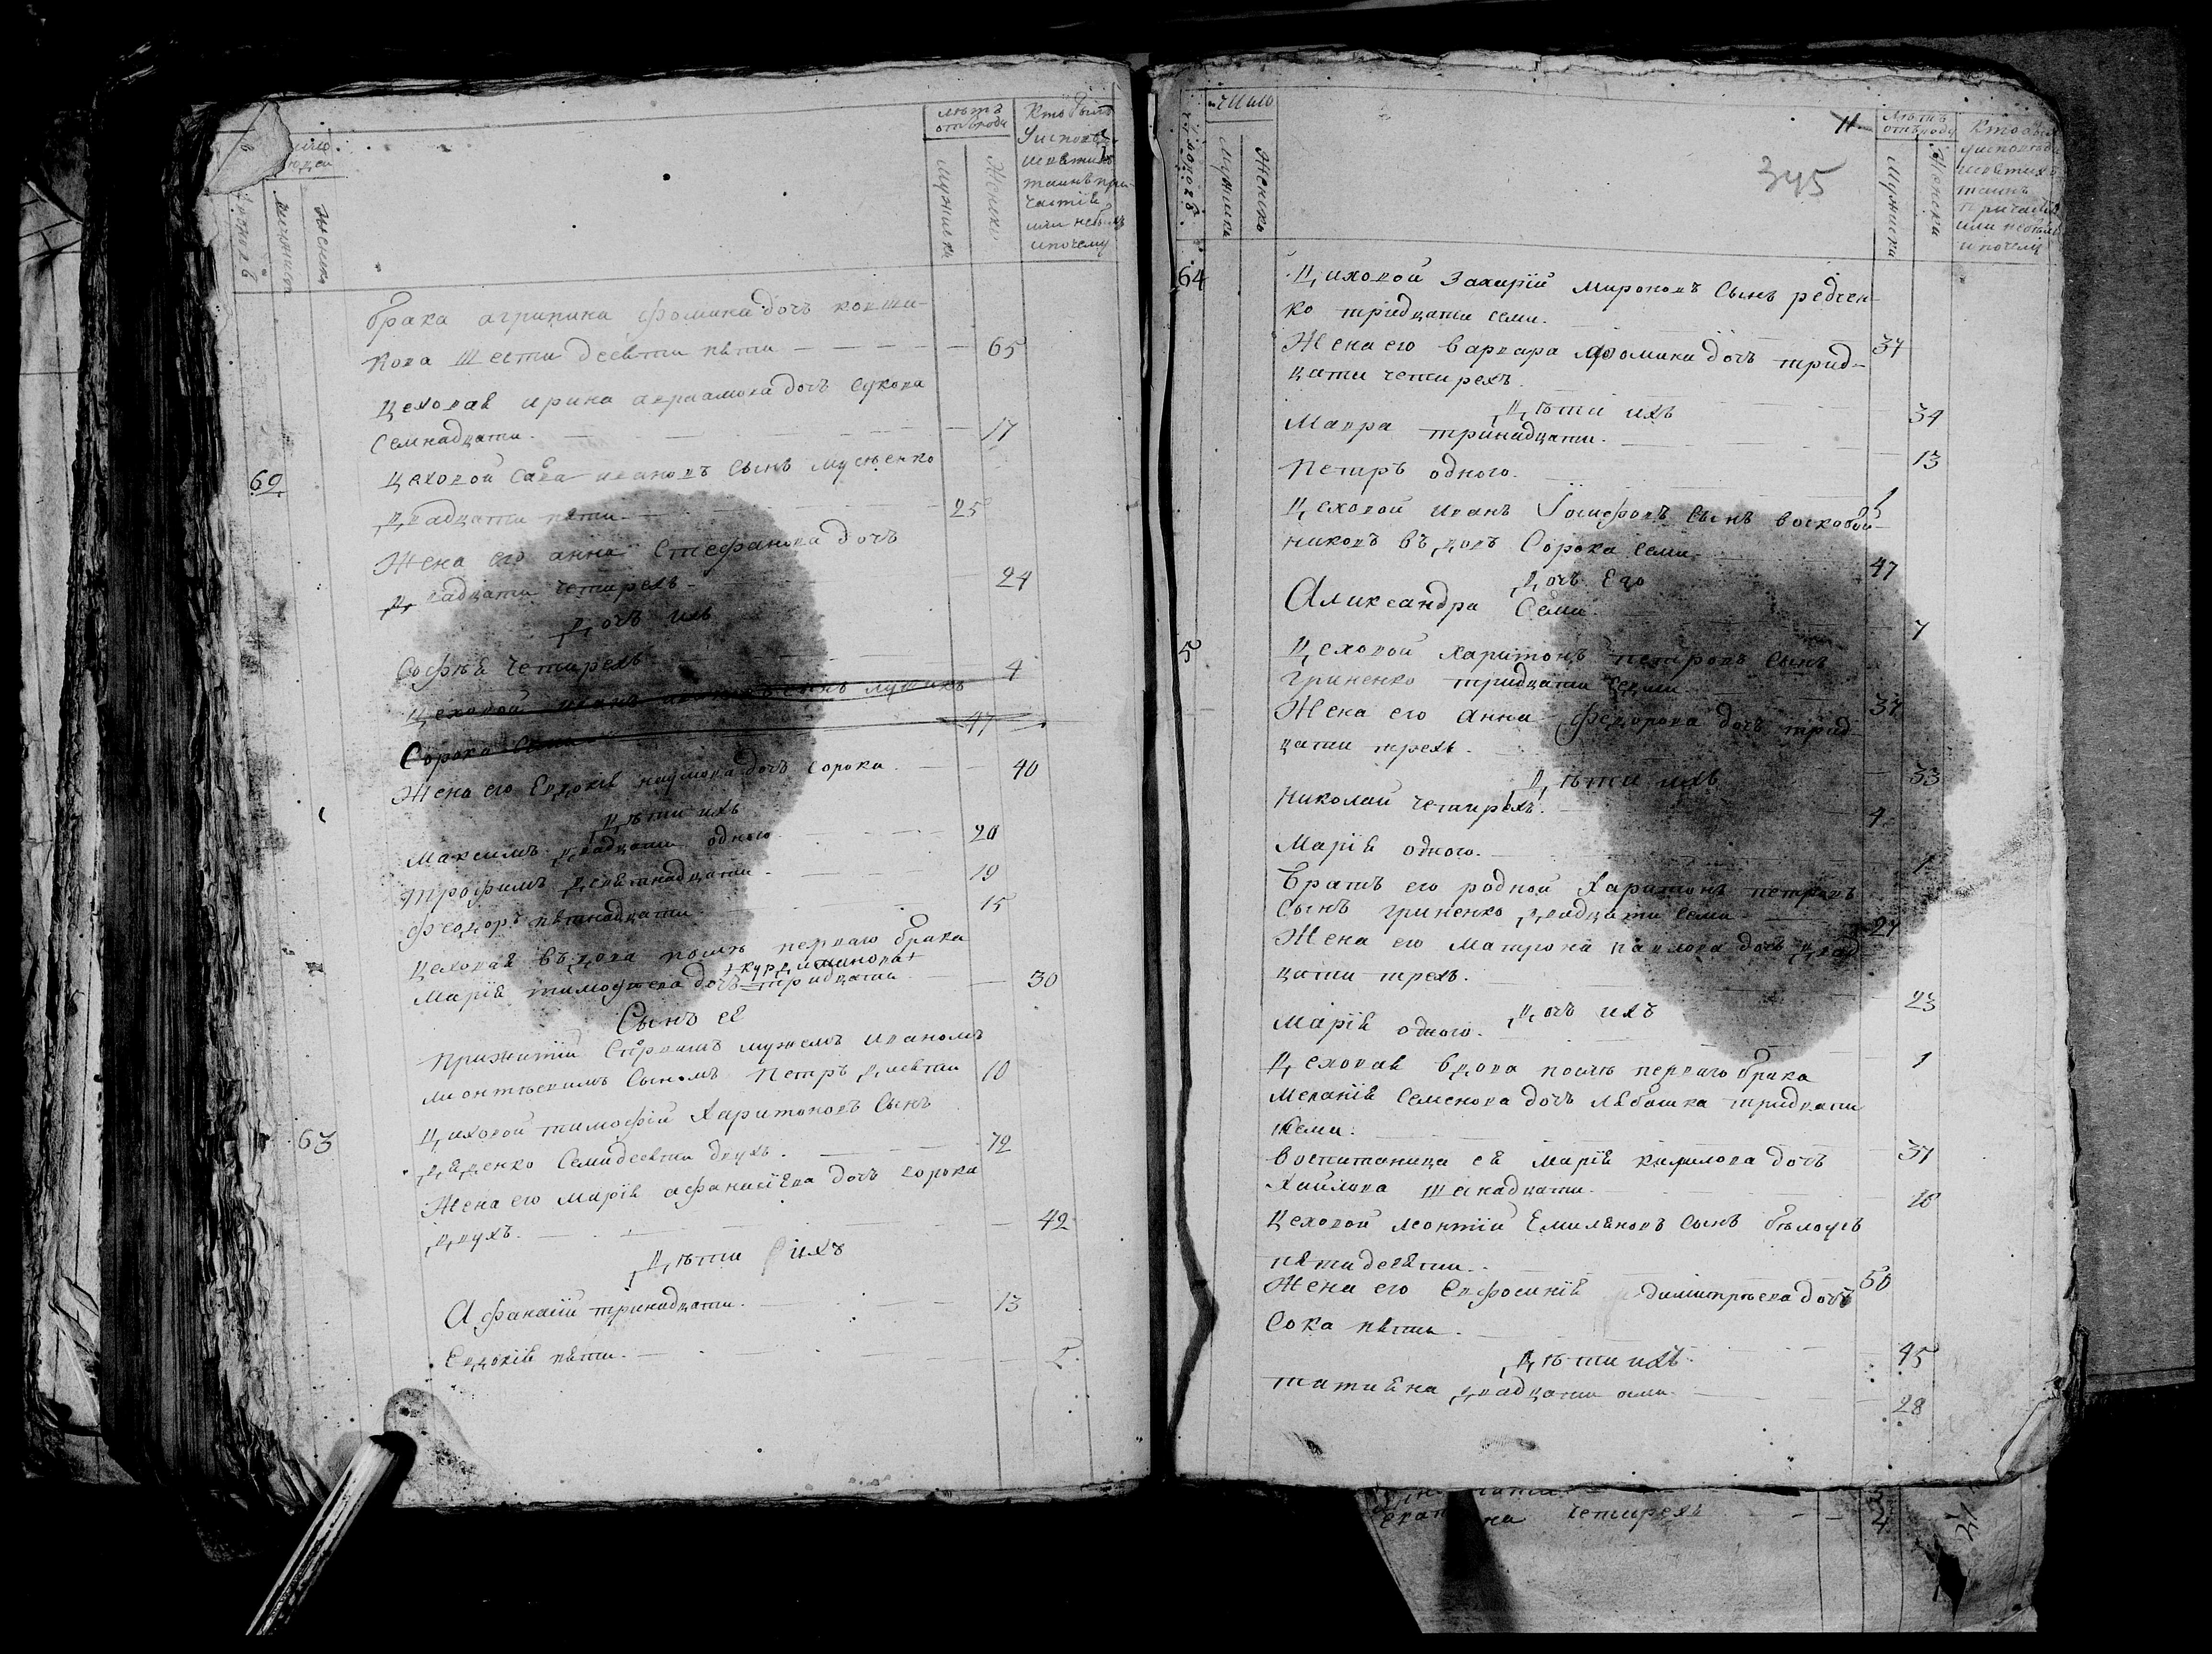 лѣтъ
отъ роду
Мужиска
Женска
брака агрипина фомина дочь ковша-
кова шестидесяти пяти 65
Цеховая ирина авраамова дочь сукова
семнадцати. 17
62 Цеховой Сава ивановъ сынъ
двадцати пяти. 25
Жена его анна Стефанова дочь
двадцати четирехъ 24
дочь ихъ
Софѣя четирехъ 4
Цеховой иванъ сынъ
Сорока семи 47
Жена его Евдокія наумова дочь сорока 40
Дѣти ихъ
Максимъ двадцати одного 20
Трофимъ девятнадцати 19
Феодоръ пятнадцати 15
Цеховая въдова послѣ перваго брака
Марія тимофеева дочь тридцати 30
Сынъ ея
Прижитій Спервимъ мужемъ иваномъ
леонтѣевимъ сыномъ Петръ десяти 10
63 Цеховой тимофій Харитоновъ сынъ
Дяденко семидесяти двухъ. 72
Жена его Марія афанасіева дочь сорока
двухъ. 42
Дѣти ихъ
Афанасій тринадцати. 13
Евдокія пяти. 5
Число
Мужиска
Женска
11
345
лѣтъ
отъ роду
Мужиска
Женска
64 Цеховой Захарій Мироновъ сынъ редчен-
ко тридцати семи. 37
Жена его варвара фомина дочь трид-
цати четирехъ. 34
Дѣти ихъ
Мавра тринадцати. 13
Петръ одного. 1
Цеховой иванъ Іосифовъ сынъ воскобой-
никовъ въдовъ Сорока семи 47
дочь Его
Александра Семи 7
5 Цеховой Харитонъ петровъ сынъ
гриненко тридцати семи 37
Жена его Анна Феодорова дочь трид
цати трехъ. 33
Дѣти ихъ
Николай четирехъ. 4
Марія одного. 1
братъ его родной Харитонъ петровъ
сынъ гриненко двадцати семи 27
Жена его Матрона павлова дочь двад
цати трехъ. 23
дочь ихъ
Марія одного. 1
Цеховая вдова послѣ перваго брака
Меланія Семенова дочь лябошка тридцати
семи. 37
воспитаница ея Марія Кирилова дочь
шеснадцати. 16
Цеховой леонтій Емиляновъ сынъ бѣлоусъ
пятидесяти. 50
Жена его Евфосинія димитрѣева дочь
Сока пяти. 45
Дѣти ихъ
татияна двадцати осми. 28
четирехъ 4